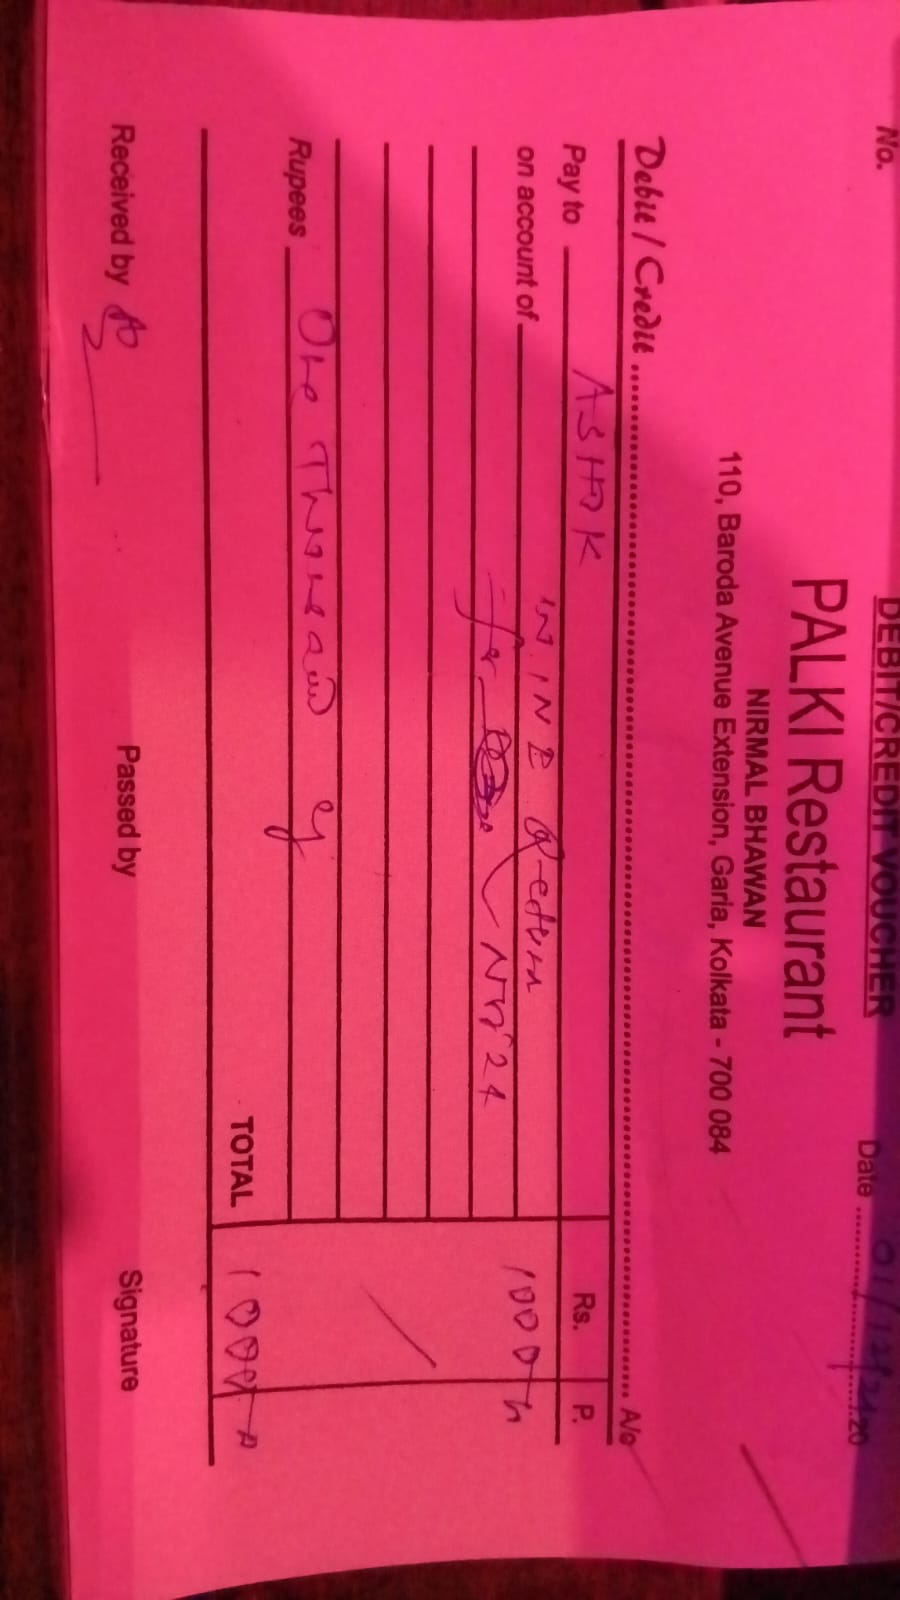 No.
DEBIT/CREDIT VOUCHER
Date 01/12/2420
PALKI Restaurant
NIRMAL BHAWAN
110, Baroda Avenue Extension, Garia, Kolkata - 700 084
Debit / Credit A/c
Pay to ASHOK Rs. P.
on account of WINE Return 1000
for Nov'24
Rupees One Thousand
TOTAL 1000
Received by Passed by Signature